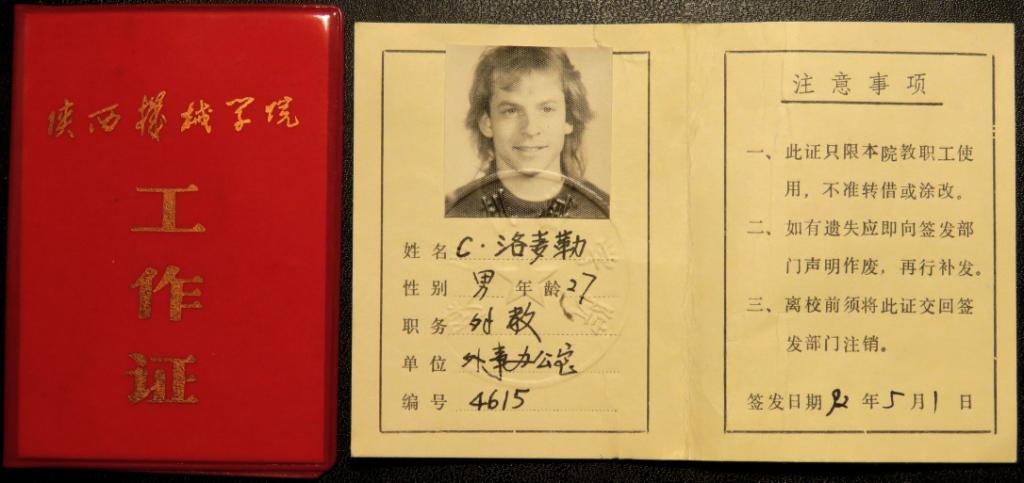 陕西机械学院
工作证
姓名 C·洛麦勒
性别 男 年龄 27
职务 外教
单位 外事办公室
编号 4615
注意事项
一、此证只限本院教职工使
用，不准转借或涂改。
二、如有遗失应即向签发部
门声明作废，再行补发。
三、离校前须将此证交回签
发部门注销。
签发日期 92 年 5 月 1 日